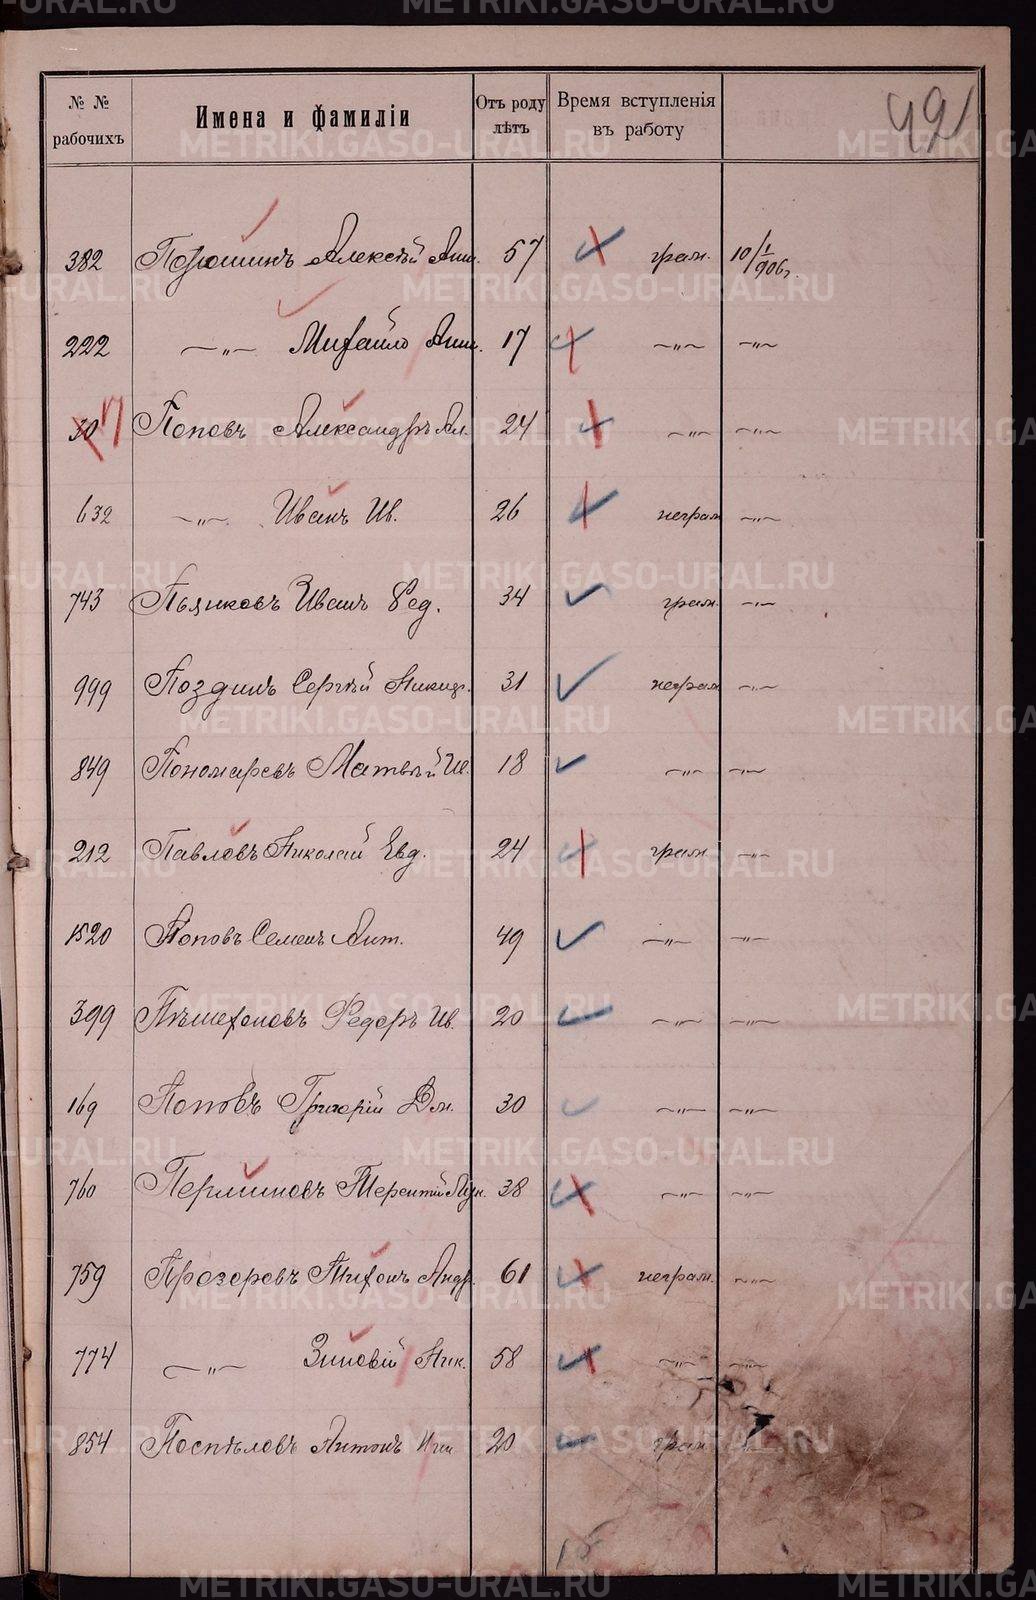 49
№ № рабочихъ Имена и фамиліи Отъ роду лѣтъ Время вступленія въ работу
382 Алексѣй 57 грам. 10/I 906 г.
222 —„— Михайло 17 —„— —„—
17 Поповъ Александръ Ал. 24 —„— —„—
632 —„— Иванъ Ив. 26 неграм —„—
743 Пьянковъ Иванъ Фед. 34 грам. —„—
999 Поздинъ Сергѣй 31 неграм —„—
849 Пономаревъ Матвѣй 18 —„— —„—
212 Павловъ Николай Евд. 24 грам. —„—
1520 Поповъ Семенъ Ант. 49 —„— —„—
399 Федоръ Ив. 20 —„— —„—
169 Поповъ Григорій Дм. 30 —„— —„—
760 Перминовъ Терентій 38 —„— —„—
759 Прозоровъ Тихонъ Андр. 61 неграм. —„—
774 —„— Зиновій Ник. 58 —„— —„—
854 Поспѣловъ Антонъ 20 грам.
15
METRIKI.GASO-URAL.RU